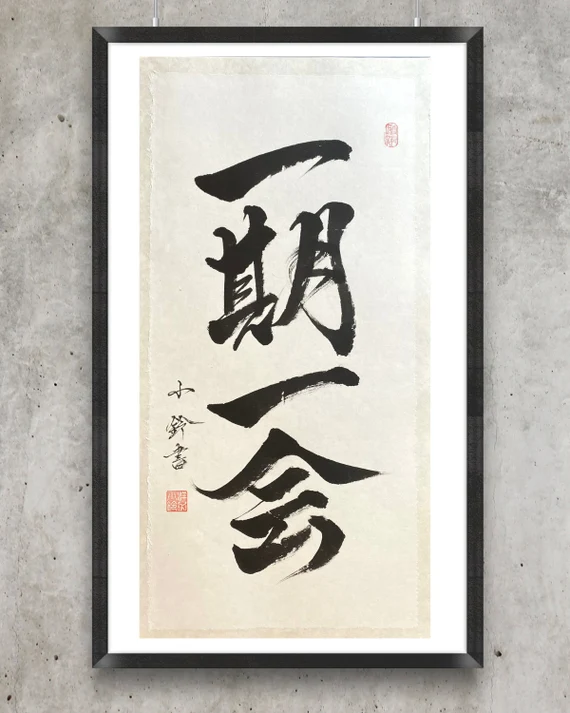 一期一会
小鈴書